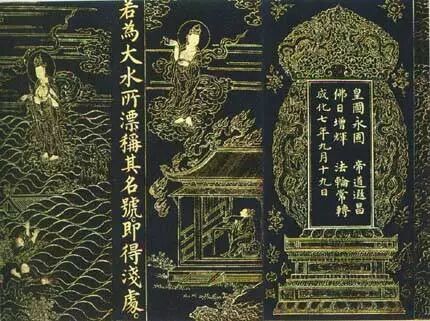 皇圖永固 帝道遐昌
佛日增輝 法輪常轉
成化七年九月十九日
若為大水所漂稱其名號即得淺處